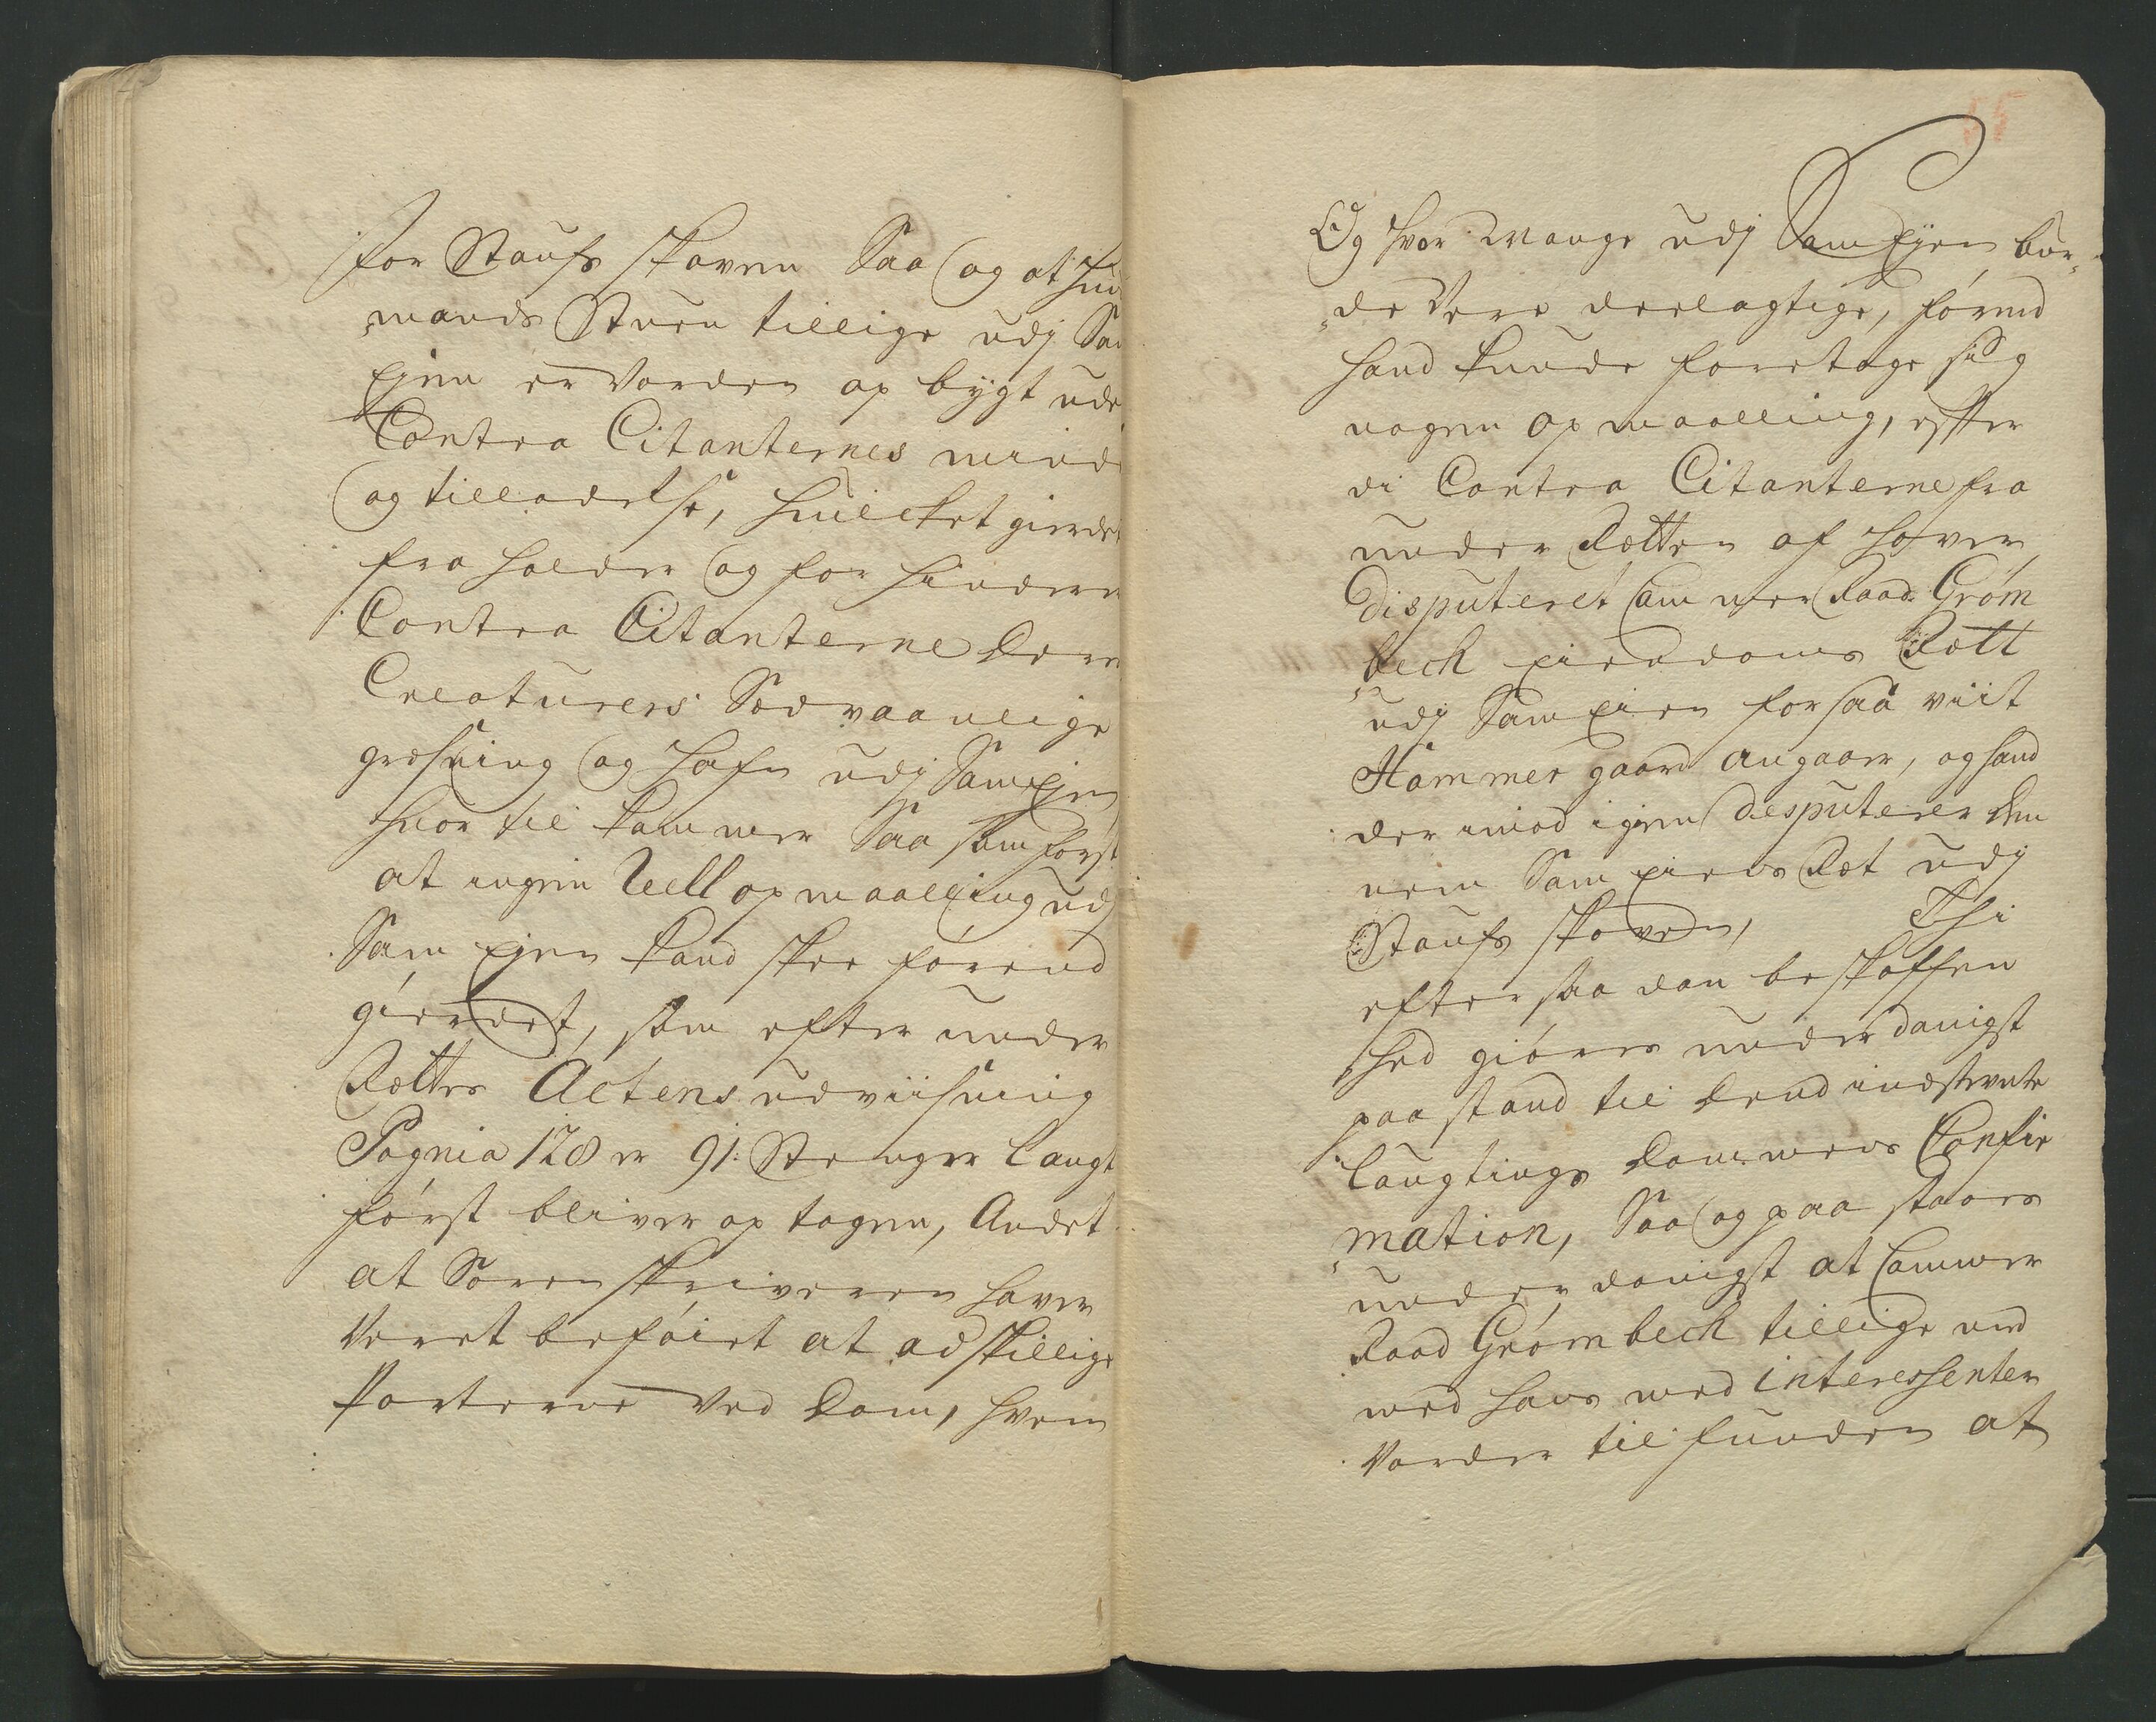 for Staufs skoven Saa og at Huus
mands Stuen tillige udj Sam
Ejen er Vorden op bygt uden
Contra Citanternes minde
og tilladelse, huilcket gierde
fra holder og for hindrer
Contra Citanterne Dere
Creaturers Sædvaanlige
græsning og Hafn udj Sam Ejen
huor til kommer Saa som først
at ingen Uell opmaalling udj
Sam Ejen kand skee førend
gierdet, som efter under
Rættes Actens udviisning
Pagnia 128 er 91: Stenger langt
først bliver op tagen, Andet
at Soren skriveren haver
Veret beføiet at adskillige
Parterne Ved Dom, hvem
55
Og hvor Mange udj Sam Ejen bur„
„de Vere deelagtige, førend
hand kunde foretage sig
nogen opmaalling, effter
di Contra Citanterne fra
under Rætten af haver
Disputeret Cammer Raad Grøm
„beck Eiendoms Rætt
udj Sam Eien forsaa viit
Hammer gaard angaaer, og hand
der imod igien Disputerer den
nem Sam Eiens Ræt udj
Staufs skoven, Thi
efter saa dan beskaffen
„hed giøres underdanigst
paastand til Dend indstevnte
laugtings Dommens Confir
„mation, Saa og paa staaes
underdanigst at Cammer
Raad Grømbeck tillige med
med hans med interessenter
Vorder tilfunden at